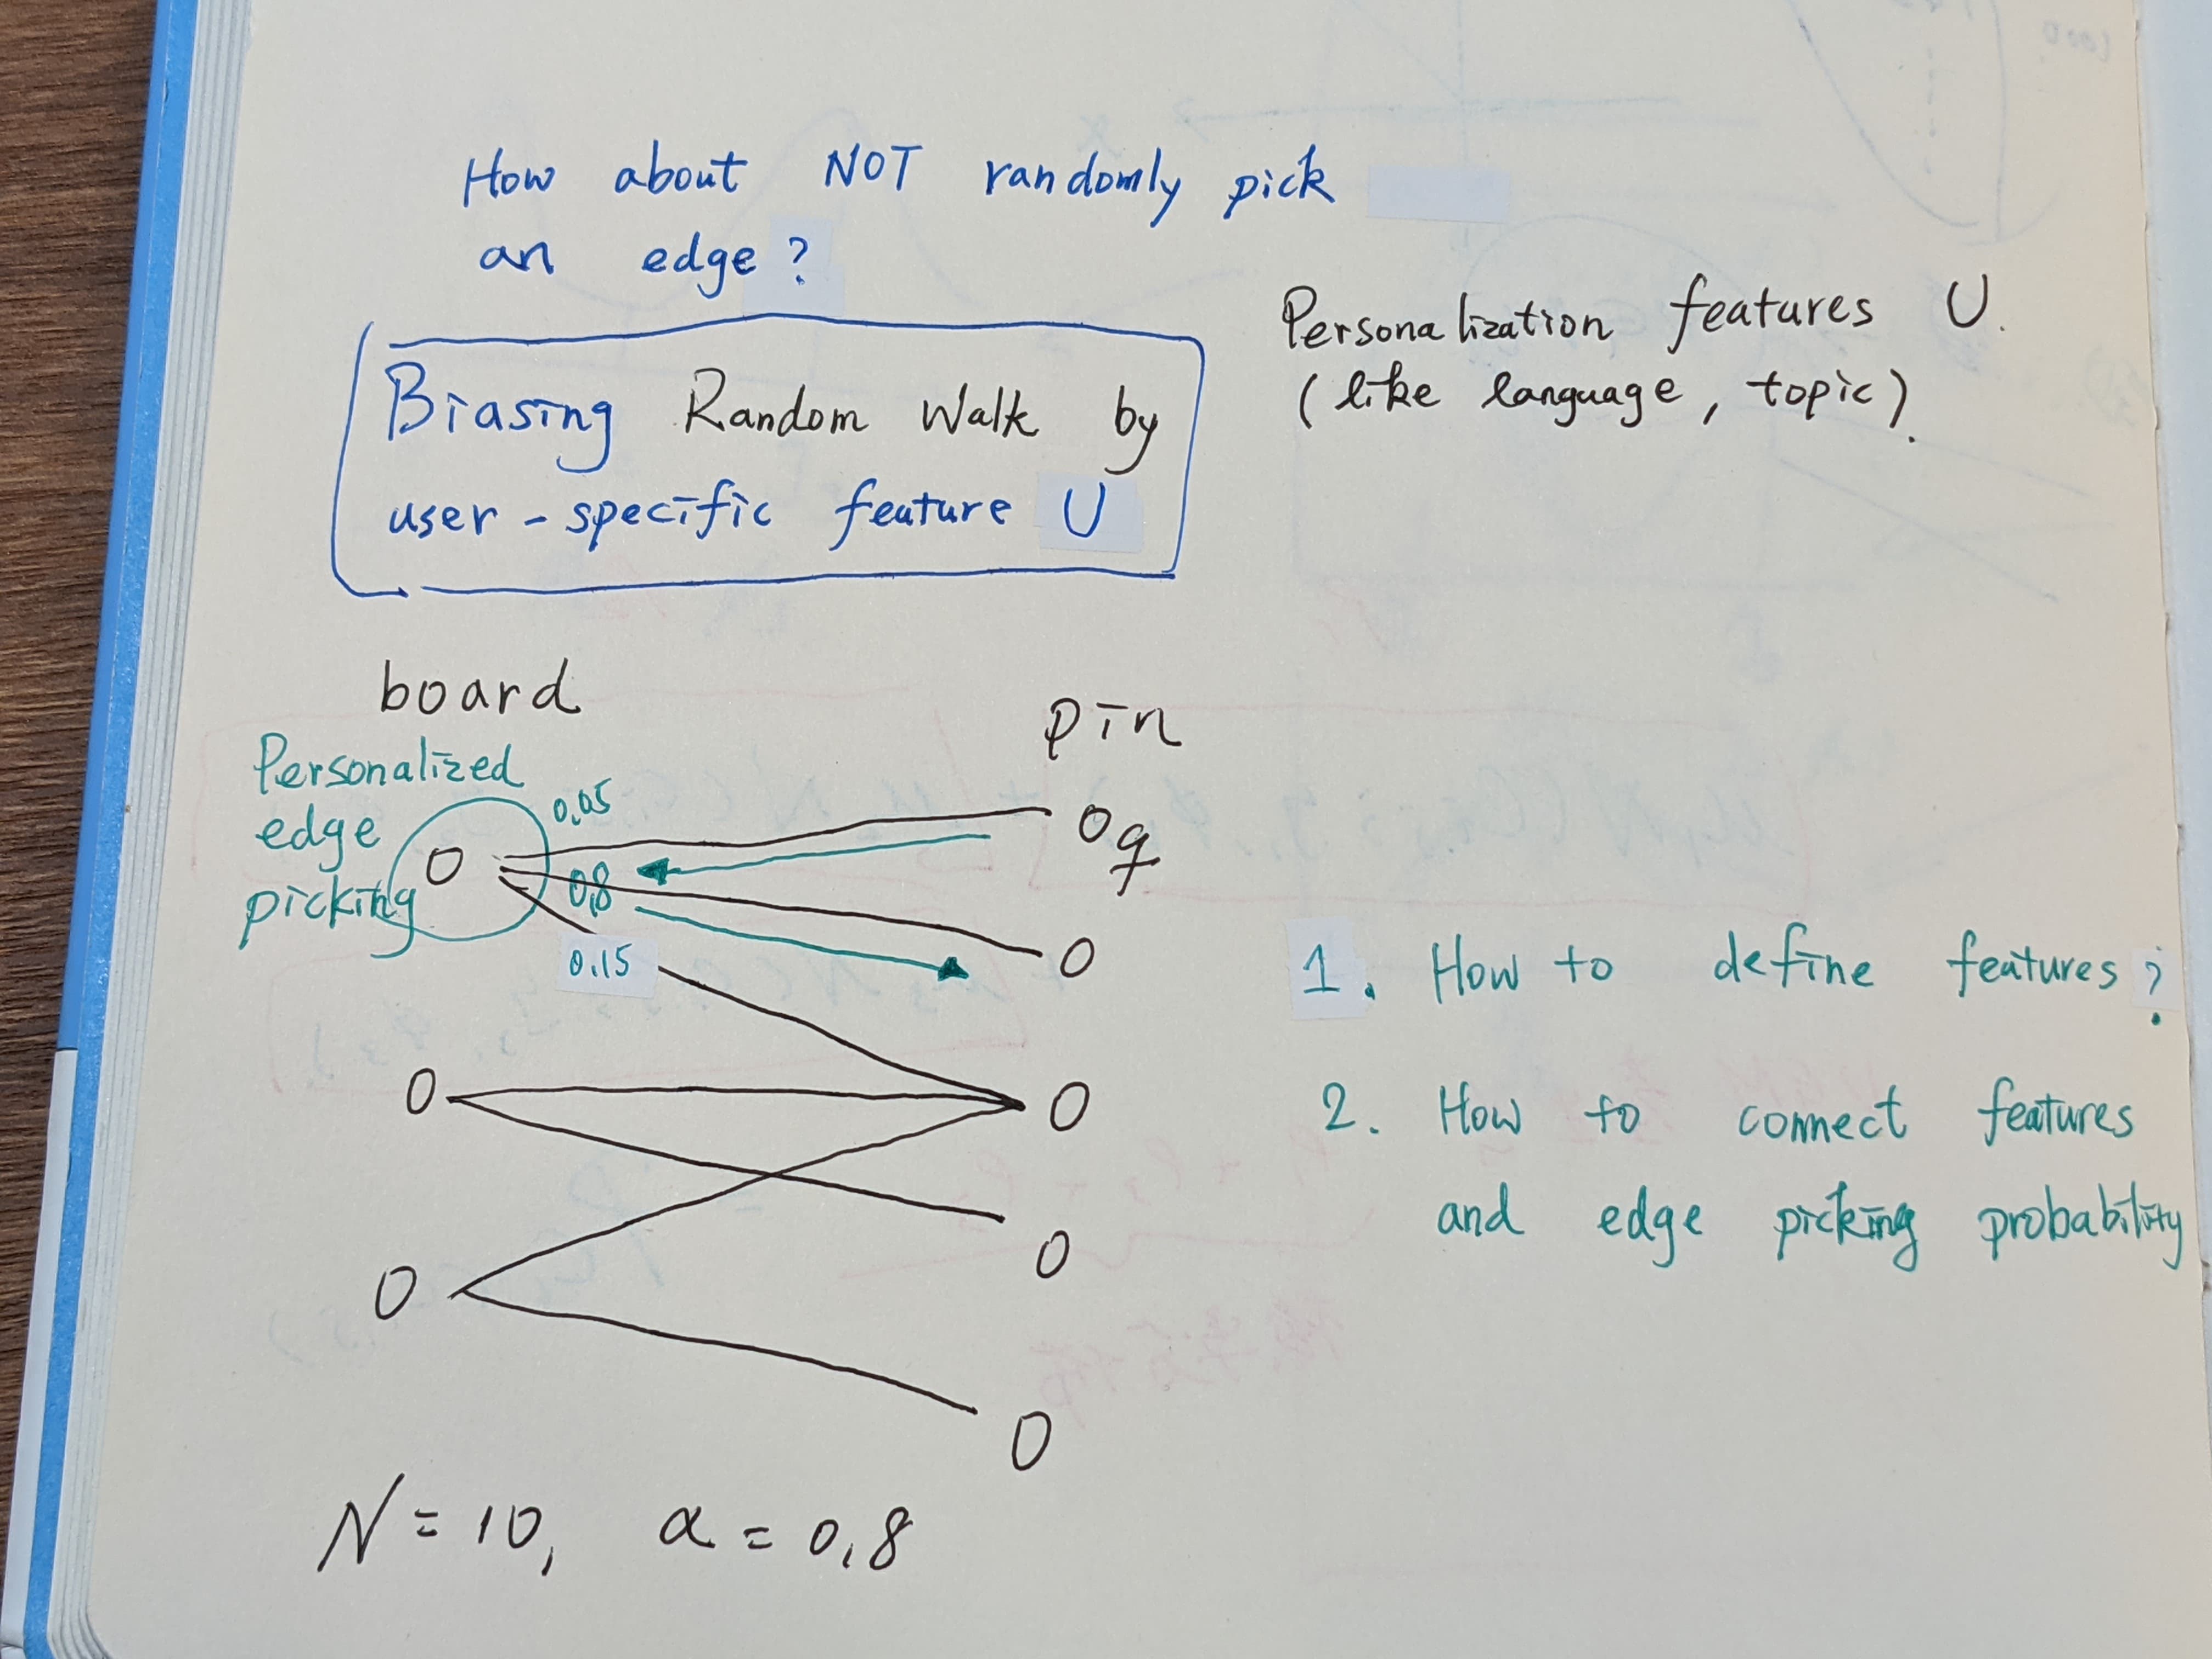 How about NOT randomly pick
an edge?
Biasing Random Walk by
user-specific feature U
Personalization features U.
(like language, topic).
board
pin
Personalized
edge
picking
0.05
0.8
0.15
q
1. How to define features?
2. How to connect features
and edge picking probability
N = 10, α = 0.8